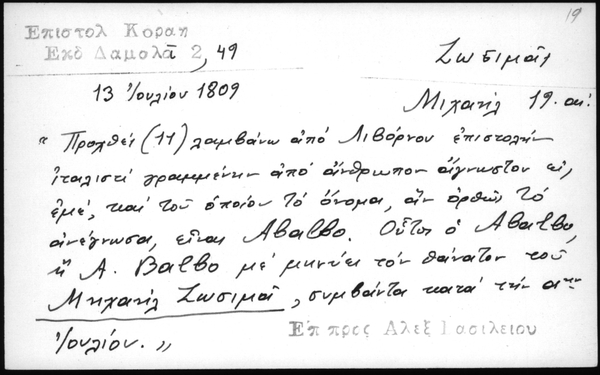 19
Επιστολ Κοραη
Εκδ Δαμαλᾶ 2, 49
Ζωσιμᾶς
13 Ἰουλίου 1809
Μιχαὴλ 19. αἰ.
" Προχθές (11) λαμβάνω ἀπό Λιβόρνου ἐπιστολήν
ἰταλιστί γραμμένην ἀπό ἄνθρωπον ἄγνωστον εἰς
ἐμέ, καί τοῦ ὁποίου τό ὄνομα, ἄν ὀρθῶς τό
ἀνέγνωσα, εἶναι Abalbo. Οὗτος ὁ Abalbo,
ἤ A. Balbo μέ μηνύει τόν θάνατον τοῦ
Μιχαὴλ Ζωσιμᾶ, συμβάντα κατά τήν α
Ἰουλίου. "
Ἐπ προς Αλεξ Βασιλειου